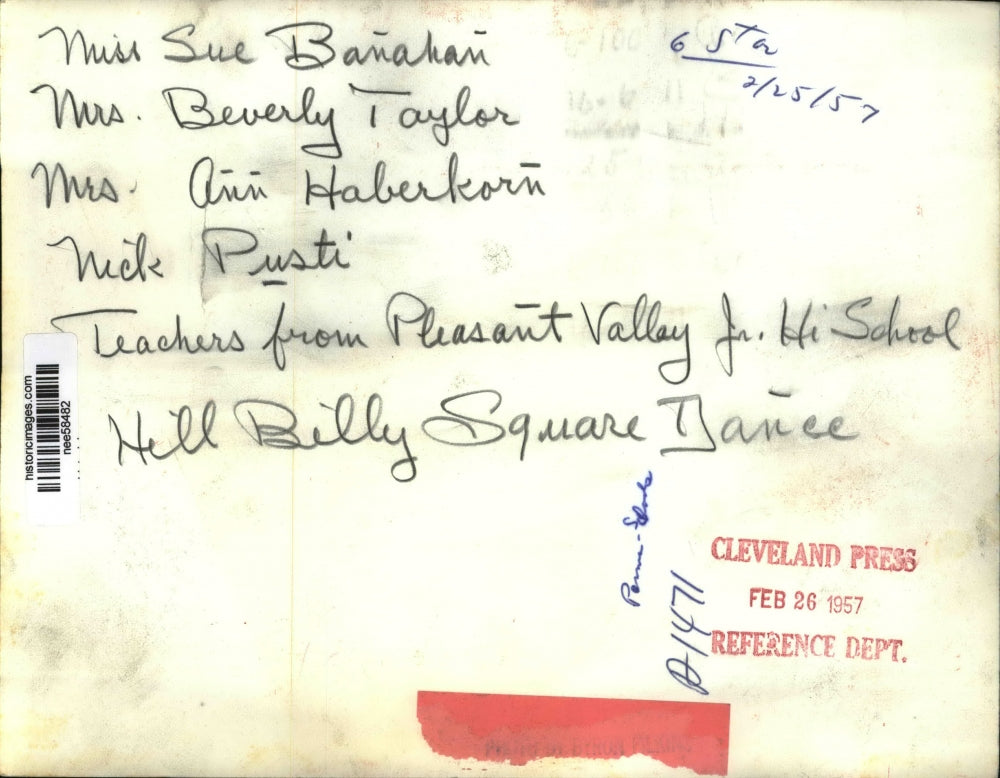 Miss Sue Banahan
Mrs. Beverly Taylor
Mrs. Ann Haberkorn
Nick Pusti
Teachers from Pleasant Valley Jr. Hi School
Hill Billy Square Dance
6 Star
2/25/57
historicimages.com
nee58482
A-1471
CLEVELAND PRESS
FEB 26 1957
REFERENCE DEPT.